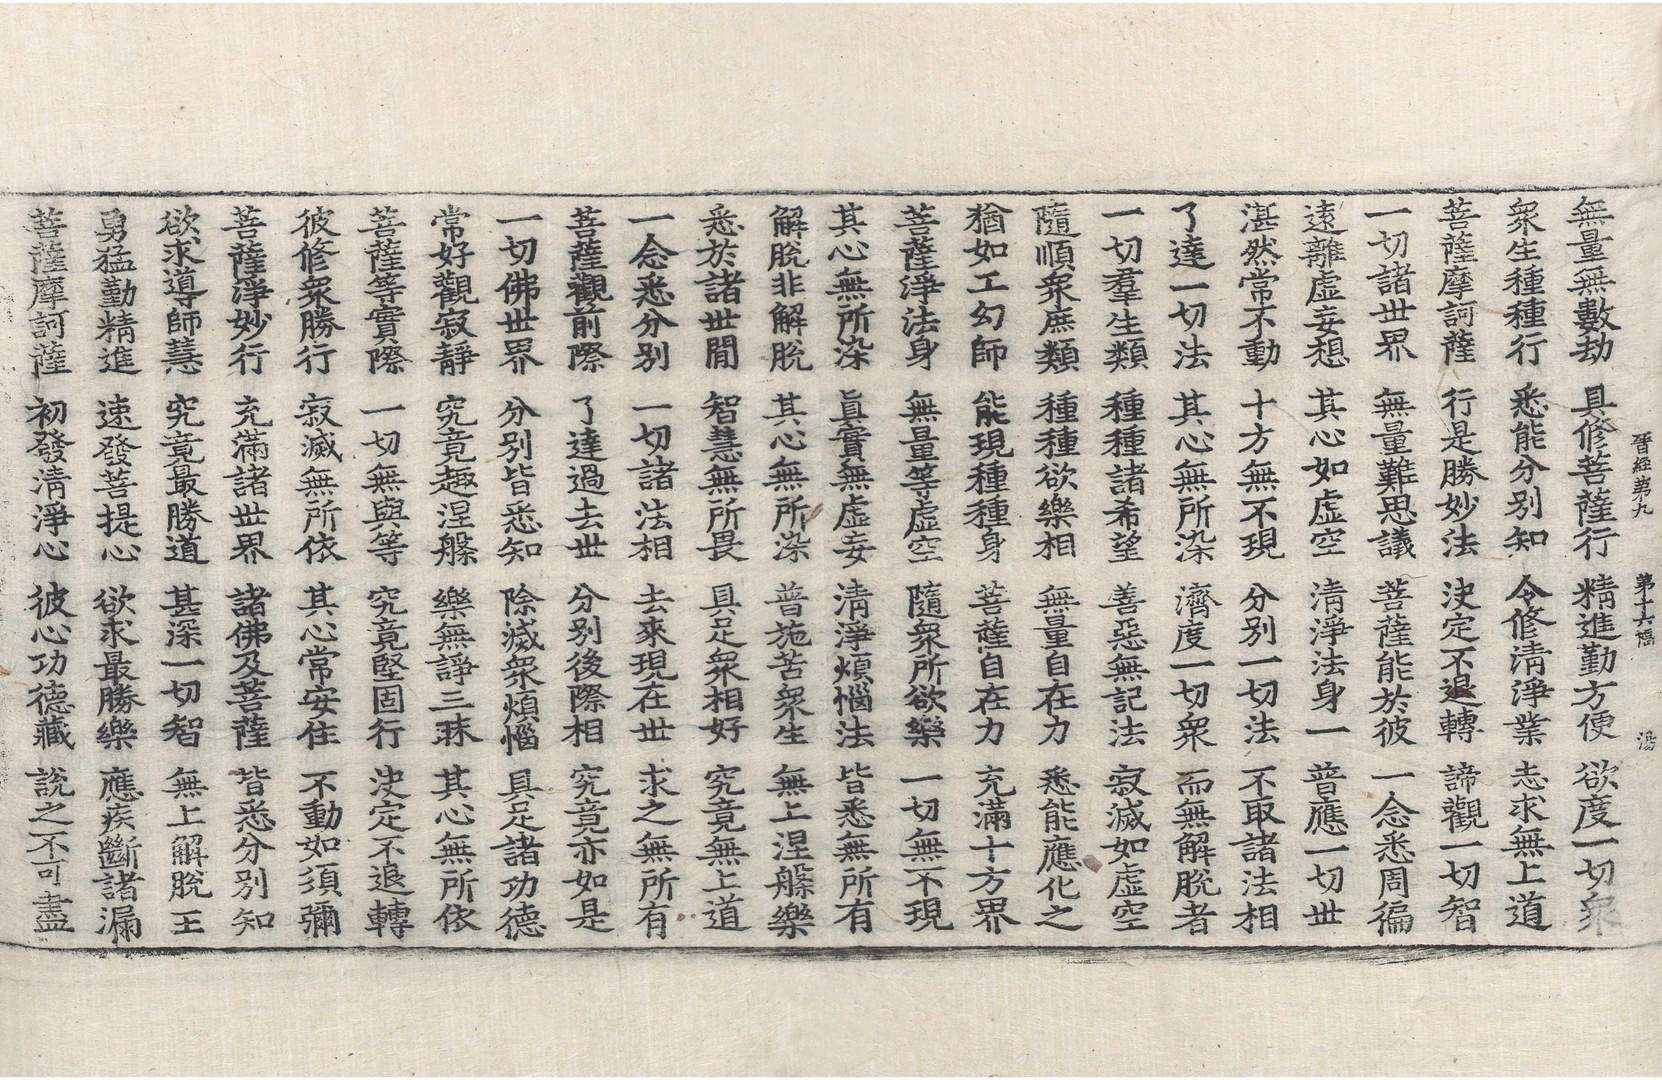 晉經第九 第十六幅 湯
無量無數劫 具修菩薩行 精進勤方便 欲度一切衆
衆生種種行 悉能分別知 令修清淨業 志求無上道
菩薩摩訶薩 行是勝妙法 決定不退轉 諦觀一切智
一切諸世界 無量難思議 菩薩能於彼 一念悉周徧
遠離虛妄想 其心如虛空 清淨法身一 普應一切世
湛然常不動 十方無不現 分別一切法 不取諸法相
了達一切法 其心無所染 濟度一切衆 而無解脫者
一切羣生類 種種諸希望 善惡無記法 寂滅如虛空
隨順衆庶類 種種欲樂相 無量自在力 悉能應化之
猶如工幻師 能現種種身 菩薩自在力 充滿十方界
菩薩淨法身 無量等虛空 隨衆所欲樂 一切無不現
其心無所染 眞實無虛妄 清淨煩惱法 皆悉無所有
解脫非解脫 其心無所染 普施苦衆生 無上涅槃樂
悉於諸世間 智慧無所畏 具足衆相好 究竟無上道
一念悉分別 一切諸法相 去來現在世 求之無所有
菩薩觀前際 了達過去世 分別後際相 究竟亦如是
一切佛世界 分別皆悉知 除滅衆煩惱 具足諸功德
常好觀寂靜 究竟趣涅槃 樂無諍三昧 其心無所依
菩薩等實際 一切無與等 究竟堅固行 決定不退轉
彼修衆勝行 寂滅無所依 其心常安住 不動如須彌
菩薩淨妙行 充滿諸世界 諸佛及菩薩 皆悉分別知
欲求導師慧 究竟最勝道 甚深一切智 無上解脫王
勇猛勤精進 速發菩提心 欲求最勝樂 應疾斷諸漏
菩薩摩訶薩 初發清淨心 彼心功德藏 說之不可盡